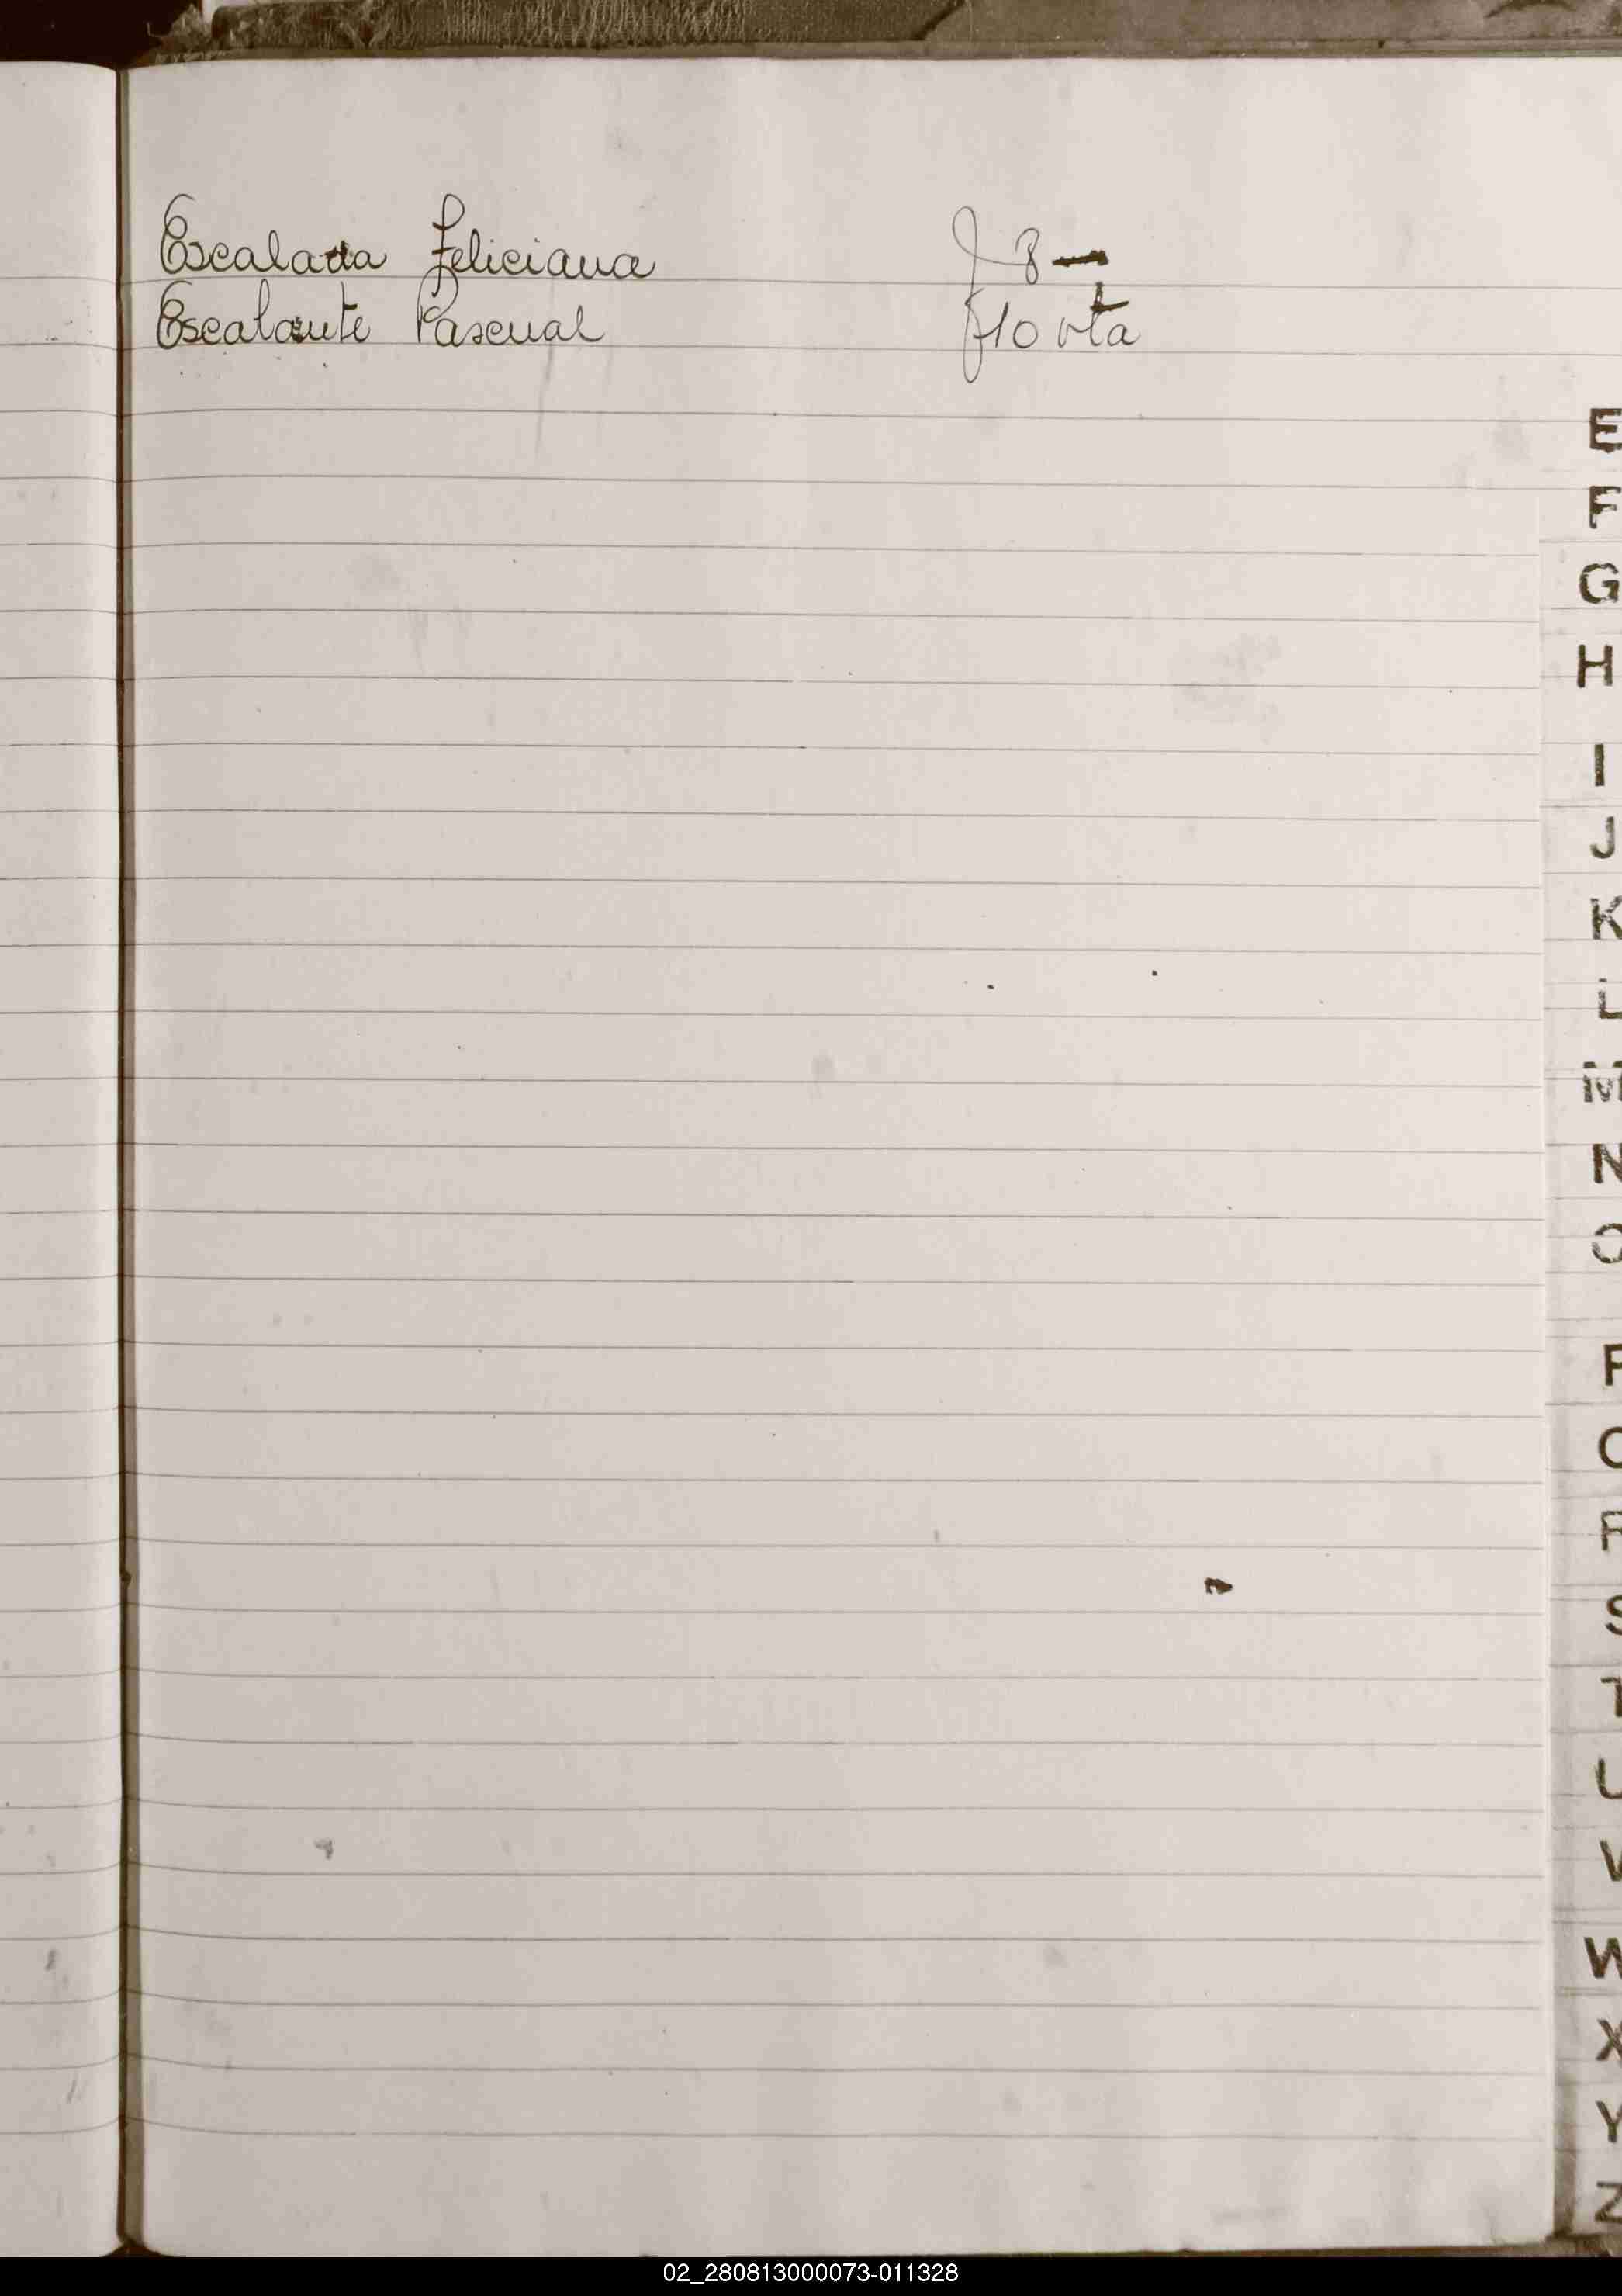 Escalada Feliciana f 8 —
Escalante Pascual f 10 vta
E
F
G
H
I
J
K
L
M
N
O
P
Q
R
S
T
U
V
W
X
Y
Z
02_280813000073-011328